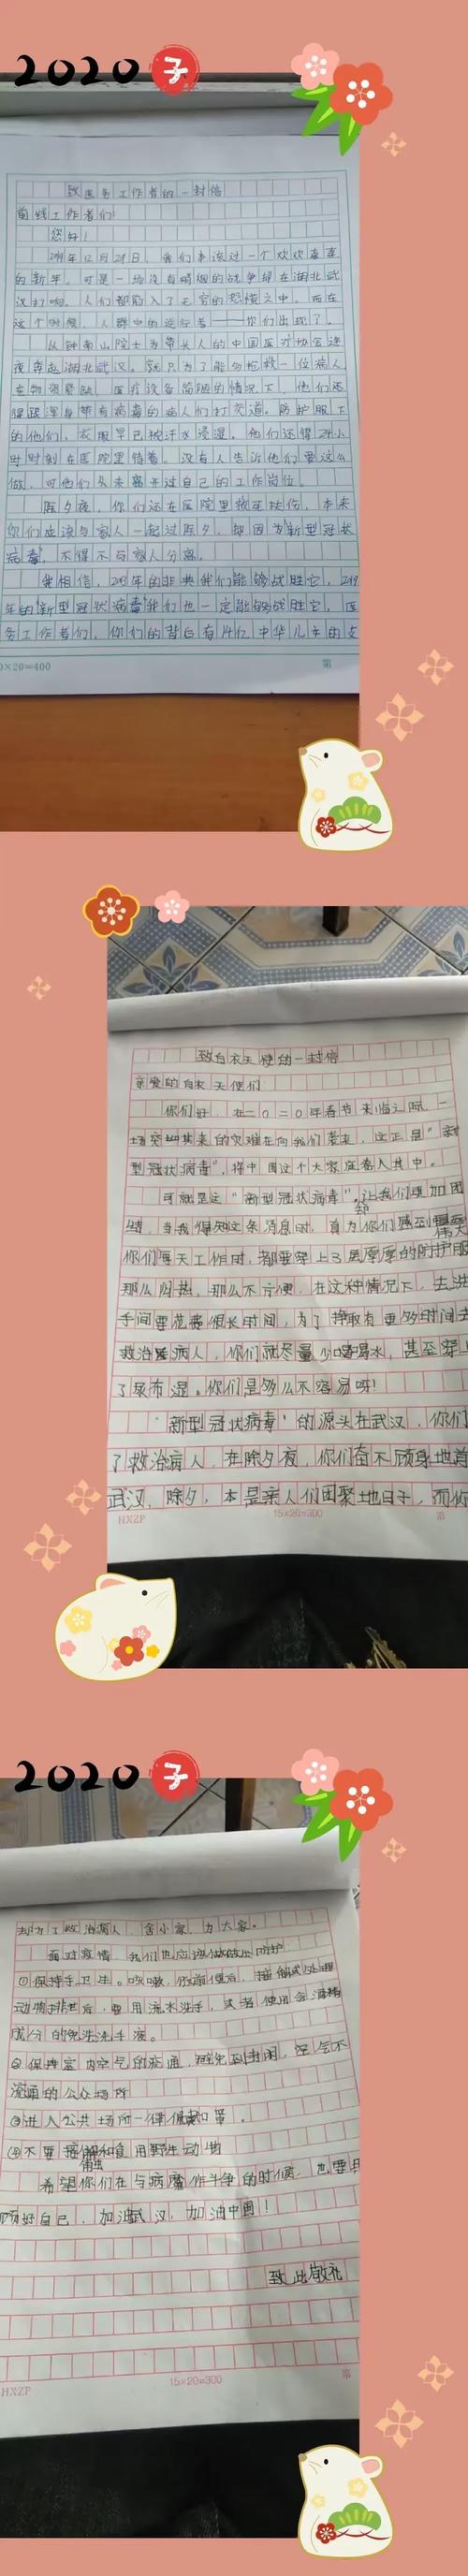 2020 子
致医务工作者的一封信
前线工作者们:
您好!
2019年12月29日,我们本该过一个欢欢喜喜
的新年,可是一场没有硝烟的战争却在湖北武
汉打响。人们都陷入了无穷的恐慌之中。而在
这个时候,人群中的逆行者——你们出现了。
从钟南山院士为带头人的中国医疗协会连
夜奔赴湖北武汉。就只为了能多抢救一位病人
在物资紧缺,医疗设备简陋的情况下,他们还
得跟浑身带有病毒的病人们打交道。防护服下
的他们,衣服早已被汗水浸湿。他们还得24小
时时刻在医院里待着。没有人告诉他们要这么
做,可他们从未离开过自己的工作岗位。
除夕夜,你们还在医院里救死扶伤,本来
你们应该与家人一起过除夕,却因为"新型冠状
病毒",不得不与家人分离。
我相信,2003年的非典我们能够战胜它,2019
年的"新型冠状病毒"我们也一定能够战胜它,医
务工作者们,你们的背后有14亿中华儿女的支
×20=400
第
致白衣天使的一封信
亲爱的白衣天使们
你们好,在二0二0年春节来临之际,一
场突如其来的灾难在向我们袭来,这正是"新
型冠状病毒",将中国这个大家庭卷入其中。
可就是这"新型冠状病毒",却让我们更加团
结,当我得知这条消息时,真为你们感到伟大
你们每天工作时,都要穿上3层厚厚的防护服
那么闷热,那么不方便,在这种情况下,去洗
手间要花费很长时间,为了挣取有更多时间去
救治病人,你们就尽量少喝水,甚至穿上
了尿布湿。你们是多么不容易呀!
"新型冠状病毒"的源头在武汉,你们
了救治病人,在除夕夜,你们奋不顾身地前
武汉,除夕,本是亲人们团聚地日子,而你
HXZP
15×20=300
第
2020 子
却为了救治病人,舍小家,为大家。
面对疫情,我们也应该做做出防护
①保持手卫生。咳嗽,饭前便后,接触或处理
动物排世后,要用流水洗手,或者使用含酒精
成分的免洗洗手液。
②保持室内空气的流通,避免到封闭,空气不
流通的公众场所
③进入公共场所一律佩戴口罩。
④不要接触和食用野生动物
希望你们在与病魔作斗争的时候,也要
顾好自己,加油武汉,加油中国!
致此敬礼
HXZP
15×20=300
第